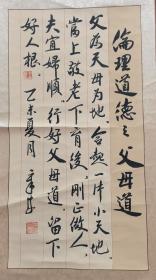 倫理道德之父母道
父为天母为地,合起一片小天地,
當上敬老下育後,剛正做人,
夫宜婦順,行好父母道,留下
好人根。乙未夏月